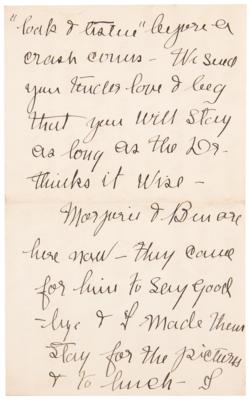 "look & listen" before a
crash comes – We send
you tender love & beg
that you will stay
as long as the Dr.
thinks it wise –
Marjorie & Ben are
here now – they came
for him to say good
-bye & I made them
stay for the pictures
& to lunch – I